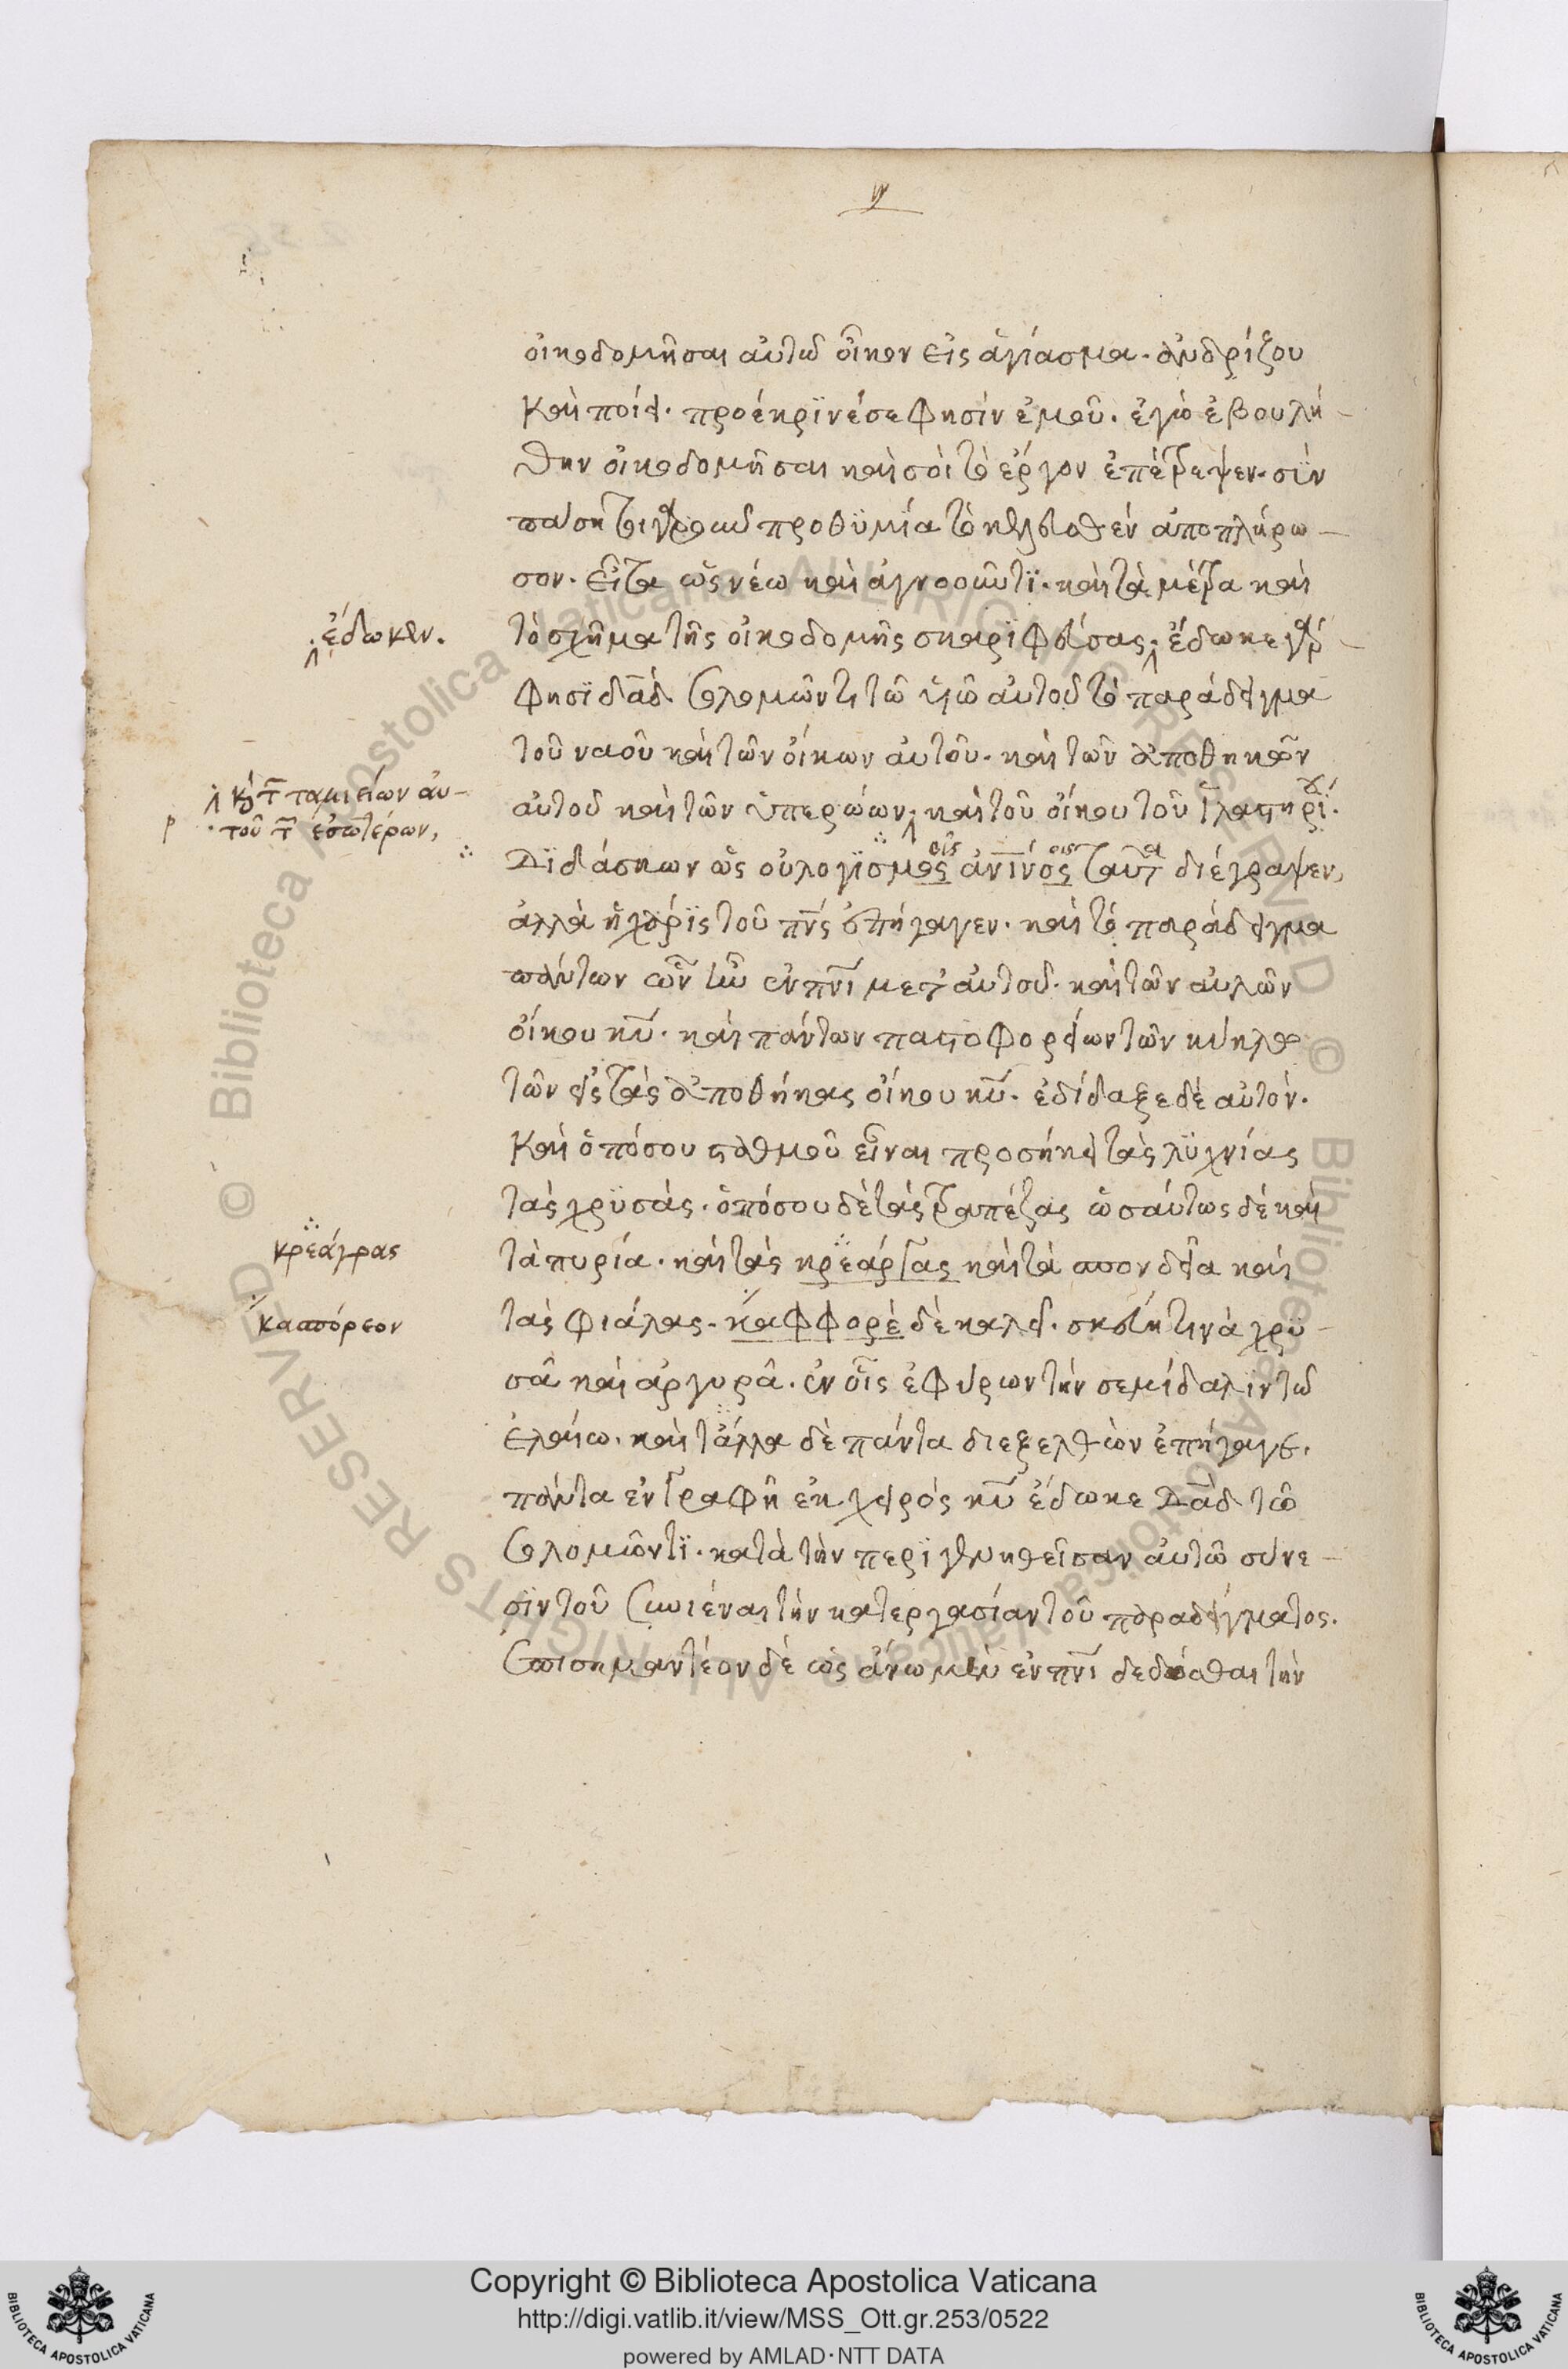 οἰκοδομῆσαι αὐτῶ οἶκον εἰς ἁγίασμα. ἀνδρίζου
καὶ ποίει. προέκρϊνέ σε φησὶν ἐμοῦ. ἐγὼ ἐβουλή-
θην οἰκοδομῆσαι καὶ σοὶ τὸ ἔργον ἐπέτρεψεν. σὺν
πάση τοιγαροῦν προθϋμία τὸ κελευσθὲν ἀποπλήρω-
σον. εἶτα ὡς νέω καὶ ἀγνοοῦντϊ. καὶ τὰ μέτρα καὶ
ἔδωκεν.
τὸ σχῆμα τῆς οἰκοδομῆς σκαρϊφεύσας, ἔδωκε γάρ
φησϊ δᾱδ σολομῶντι τῶ υἱῶ αὐτοῦ τὸ παράδειγμα
τοῦ ναοῦ καὶ τῶν οἴκων αὐτοῦ. καὶ τῶν ἀποθηκῶν
κὶ τ ταμιείων αὐ-
τοῦ τ ἐσωτέρων,
αὐτοῦ καὶ τῶν ὑπερώων, καὶ τοῦ οἴκου τοῦ ἱλαστηρί.
Δϊδάσκων ὡς οὐ λογϊσμος οῖς ἀνῑνος οις ταῦτα διέγραψεν,
ἀλλὰ ἡ χάρϊς τοῦ πν̄ς ἐπήγαγεν. καὶ τὸ παράδειγμα
πάντων ὧν εἶχεν ἐν πν̄ι μετ αὐτοῦ. καὶ τῶν αὐλῶν
οἴκου κῡ. καὶ πάντων παστοφορείων τῶν κύκλω
τῶν εἰς τὰς ἀποθήκας οἴκου κῡ. ἐδίδαξε δὲ αὐτόν.
καὶ ὁπόσου σταθμοῦ εἶναι προσήκει τὰς λϋχνίας
τὰς χρϋσάς. ὁπόσου δὲ τὰς τραπέζας ὡσαύτως δὲ καὶ
κρεάγρας
τὰ πυρία. καὶ τὰς κρεάργας καὶ τὰ σπονδεῖα καὶ
κασπόρεον
τὰς φιάλας. καφφορὲ δὲ καλεῖ. σκεύη τινὰ χρϋ-
σᾶ καὶ ἀργυρᾶ. ἐν οἷς ἐφύρων τὴν σεμίδαλιν τῶ
ἐλαίω. καὶ τἆλλα δὲ πάντα διεξελθὼν ἐπήγαγε.
πάντα ἐν γραφῆ ἐκ χειρὸς κῡ ἔδωκε Δᾱδ τῶ
σολομῶντϊ. κατὰ τὴν περϊγενηθεῖσαν αὐτῶ σύνε-
σϊν τοῦ συνιέναι τὴν κατεργασίαν τοῦ παραδείγματος.
ἐπισημαντέον δὲ ὡς ἄνω μὲν ἐν πν̄ι δεδόσθαι τὴν
Copyright © Biblioteca Apostolica Vaticana
http://digi.vatlib.it/view/MSS_Ott.gr.253/0522
powered by AMLAD·NTT DATA